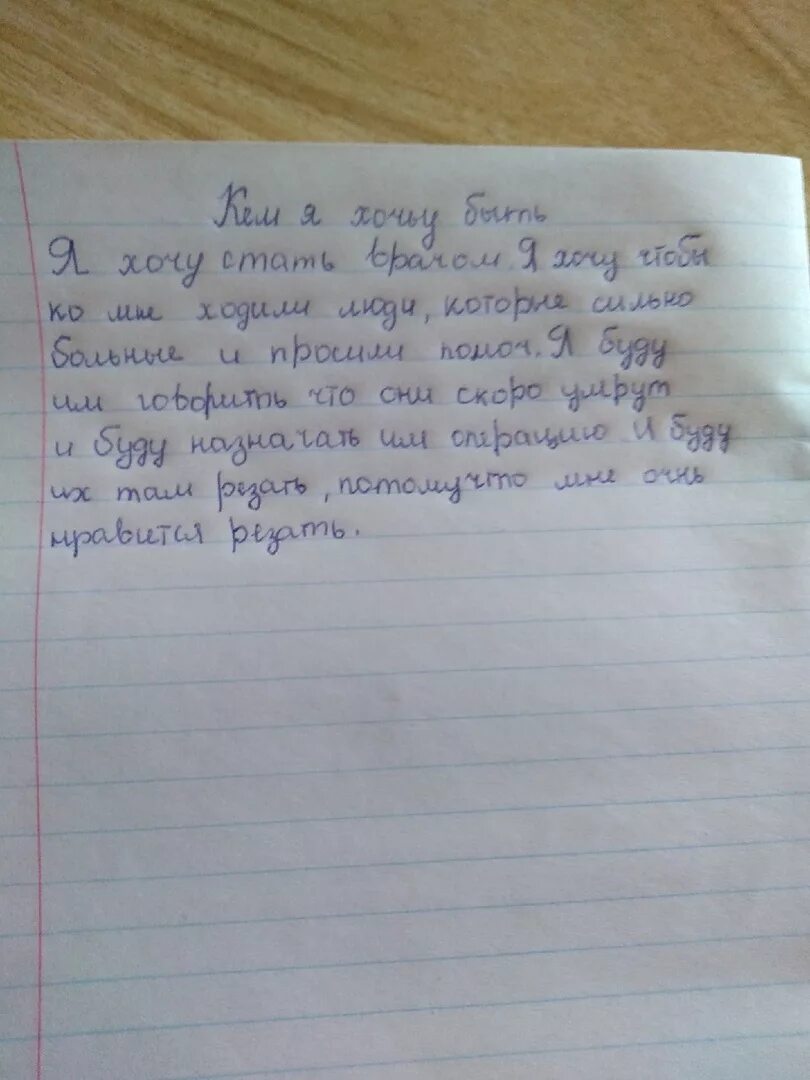 Кем я хочьу быть
Я хочу стать врачом. Я хочу чтобы
ко мне ходили люди, которые сильно
больные и просили помоч. Я буду
им говорить что они скоро умрут
и буду назначать им операцию и буду
их там резать, потомучто мне очнь
нравится резать.